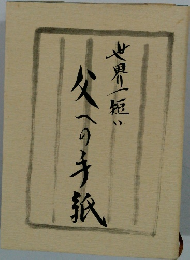 世界一短い
父への手紙